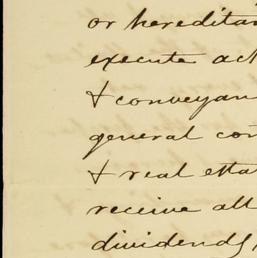 or hereditam
execute ack
& conveyan
general con
& real esta
receive all
dividends,